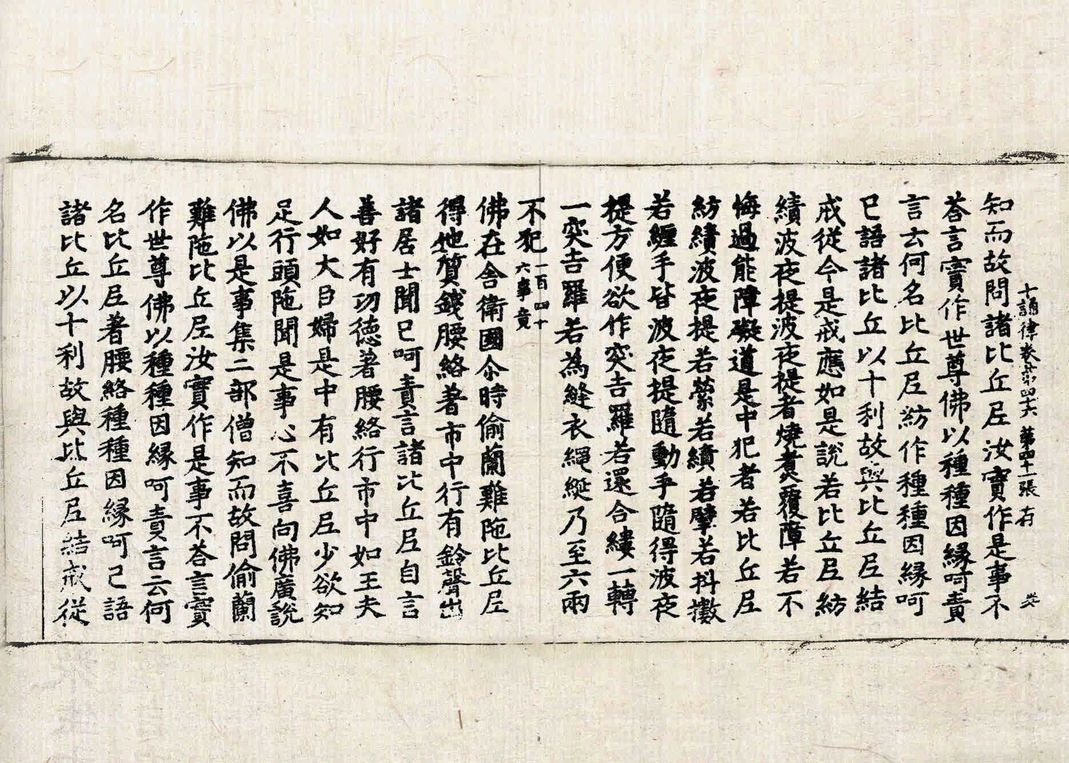 知而故問諸比丘尼汝實作是事不
十誦律卷第四六 第四十一張 存
荅言實作世尊佛以種種因緣呵責
言云何名比丘尼紡作種種因緣呵
已語諸比丘以十利故與比丘尼結
戒從今是戒應如是說若比丘尼紡
績波夜提波夜提者燒煮覆障若不
悔過能障礙道是中犯者若比丘尼
紡績波夜提若縈若績若擘若抖擻
若纏手皆波夜提隨動手隨得波夜
提方便欲作突吉羅若還合縷一轉
一突吉羅若為縫衣繩綖乃至六兩
不犯一百四十六事竟
佛在舍衛國尒時偷蘭難陁比丘尼
得他質錢腰絡著市中行有鈴聲出
諸居士聞已呵責言諸比丘尼自言
善好有功德著腰絡行市中如王夫
人如大臣婦是中有比丘尼少欲知
足行頭陁聞是事心不喜向佛廣說
佛以是事集二部僧知而故問偷蘭
難陁比丘尼汝實作是事不荅言實
作世尊佛以種種因緣呵責言云何
名比丘尼著腰絡種種因緣呵已語
諸比丘以十利故與比丘尼結戒從